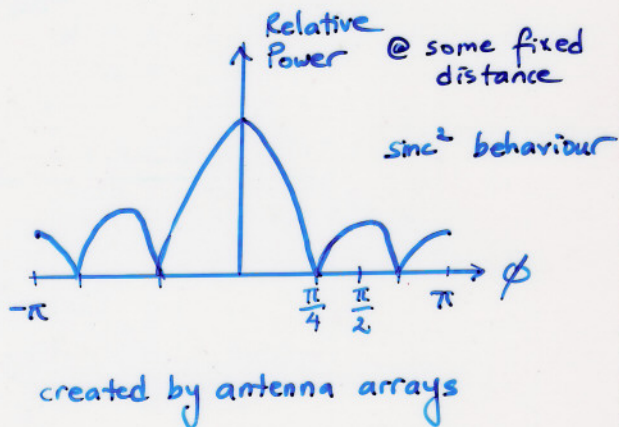 Relative
Power
@ some fixed
distance
sinc² behaviour
-π
π/4
π/2
π
φ
created by antenna arrays